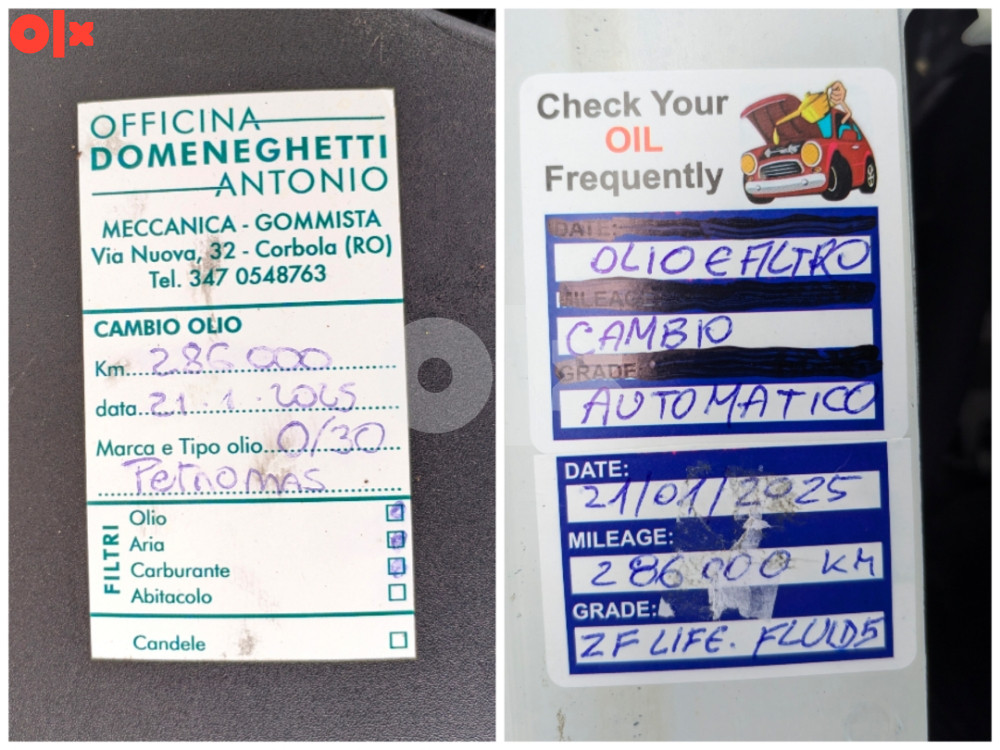 olx
OFFICINA
DOMENEGHETTI
ANTONIO
MECCANICA - GOMMISTA
Via Nuova, 32 - Corbola (RO)
Tel. 347 0548763
CAMBIO OLIO
Km. 286 000
data 21 1 . 2025
Marca e Tipo olio 0/30
Petromas
FILTRI
Olio
Aria
Carburante
Abitacolo
Candele
Check Your
OIL
Frequently
DATE:
OLIO E FILTRO
MILEAGE
CAMBIO
GRADE:
AUTOMATICO
DATE:
21/01/2025
MILEAGE:
286 000 KM
GRADE:
ZF LIFE. FLUID5